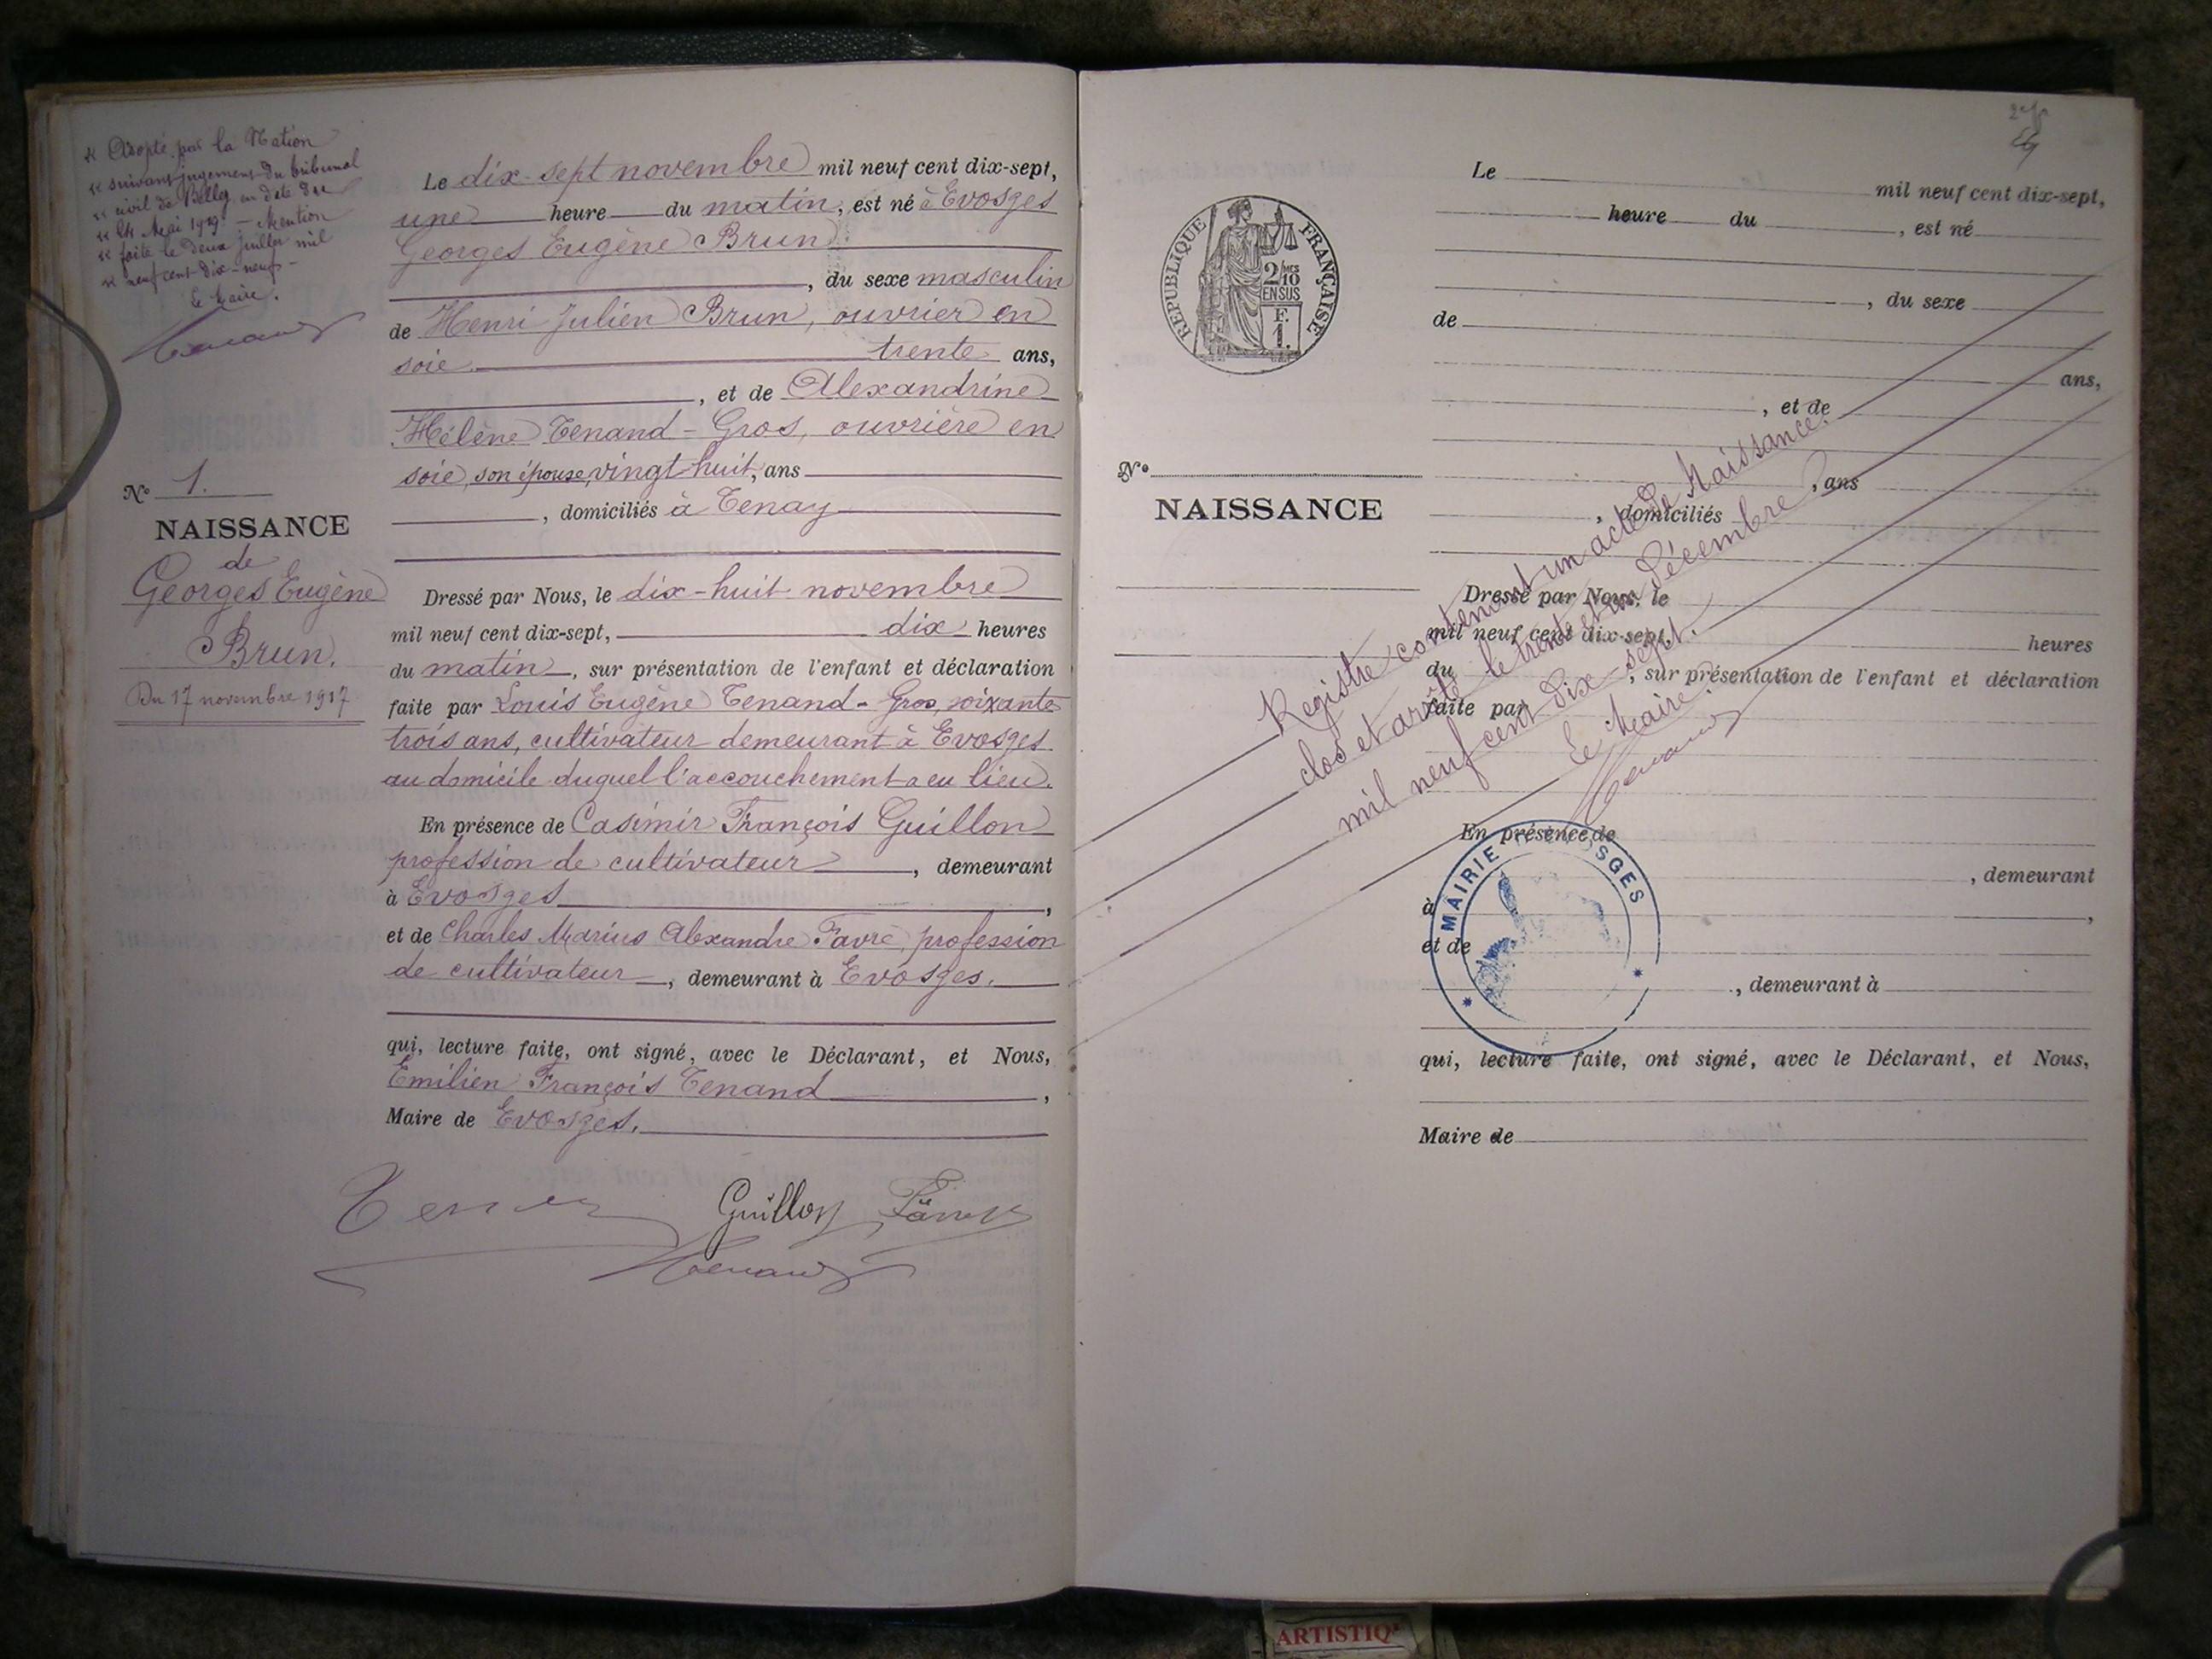 « Adopté par la Nation
« suivant jugement du tribunal
« civil de Belley en date du
« Mai 1919 - Mention
« faite le deux juillet mil
« neuf cent dix-neuf -
Le Maire.
Tenand
N° 1.
NAISSANCE
de
Georges Eugène
Brun.
Du 17 novembre 1917
Le dix-sept novembre mil neuf cent dix-sept,
une heure du matin, est né à Evosges
Georges Eugène Brun
, du sexe masculin
de Henri Julien Brun, ouvrier en
soie. trente ans,
, et de Alexandrine
Hélène Tenand-Gros, ouvrière en
soie, son épouse, vingt-huit, ans
, domiciliés à Tenay
Dressé par Nous, le dix-huit novembre
mil neuf cent dix-sept, dix heures
du matin, sur présentation de l'enfant et déclaration
faite par Louis Eugène Tenand-Gros, soixante
trois ans, cultivateur demeurant à Evosges
au domicile duquel l'accouchement a eu lieu.
En présence de Casimir François Guillon
profession de cultivateur, demeurant
à Evosges,
et de Charles Marius Alexandre Favre, profession
de cultivateur, demeurant à Evosges.
qui, lecture faite, ont signé, avec le Déclarant, et Nous,
Emilien François Tenand,
Maire de Evosges.
Guillon
Tenand
REPUBLIQUE FRANÇAISE
2/MES
10
EN SUS
F.
1.
N°
NAISSANCE
Le mil neuf cent dix-sept,
heure du , est né
, du sexe
de
ans,
, et de
, ans
, domiciliés
Dressé par Nous, le
mil neuf cent dix-sept, heures
du , sur présentation de l'enfant et déclaration
faite par
En présence de
, demeurant
à ,
et de
, demeurant à
qui, lecture faite, ont signé, avec le Déclarant, et Nous,
Maire de
Registre contenant un acte de Naissance.
clos et arrêté le trente et un Décembre
mil neuf cent dix-sept.
Le Maire
Tenand
MAIRIE SGES
ARTISTIQ